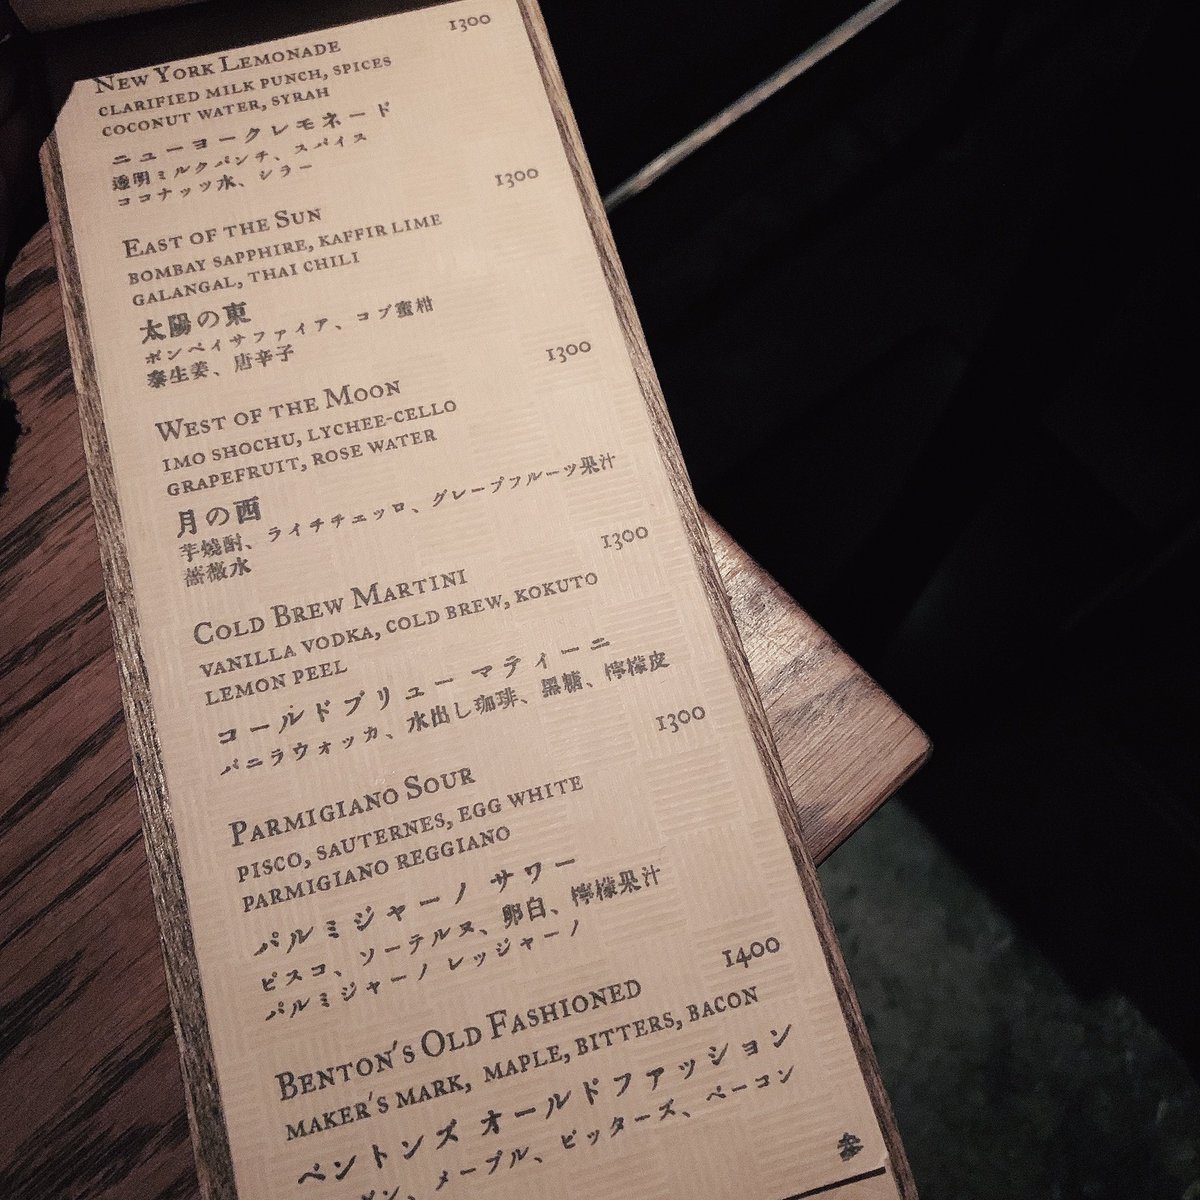 1300
New York Lemonade
clarified milk punch, spices
coconut water, syrah
ニューヨークレモネード
透明ミルクパンチ、スパイス
ココナッツ水、シラー
1300
East of the Sun
bombay sapphire, kaffir lime
galangal, thai chili
太陽の東
ボンベイサファイア、コブ蜜柑
泰生姜、唐辛子
1300
West of the Moon
imo shochu, lychee-cello
grapefruit, rose water
月の西
芋焼酎、ライチチェッロ、グレープフルーツ果汁
薔薇水
1300
Cold Brew Martini
vanilla vodka, cold brew, kokuto
lemon peel
コールドブリュー マティーニ
バニラウォッカ、水出し珈琲、黒糖、檸檬皮
1300
Parmigiano Sour
pisco, sauternes, egg white
parmigiano reggiano
パルミジャーノ サワー
ピスコ、ソーテルヌ、卵白、檸檬果汁
パルミジャーノ レッジャーノ
1400
Benton's Old Fashioned
maker's mark, maple, bitters, bacon
ベントンズ オールドファッション
メープル、ビッターズ、ベーコン